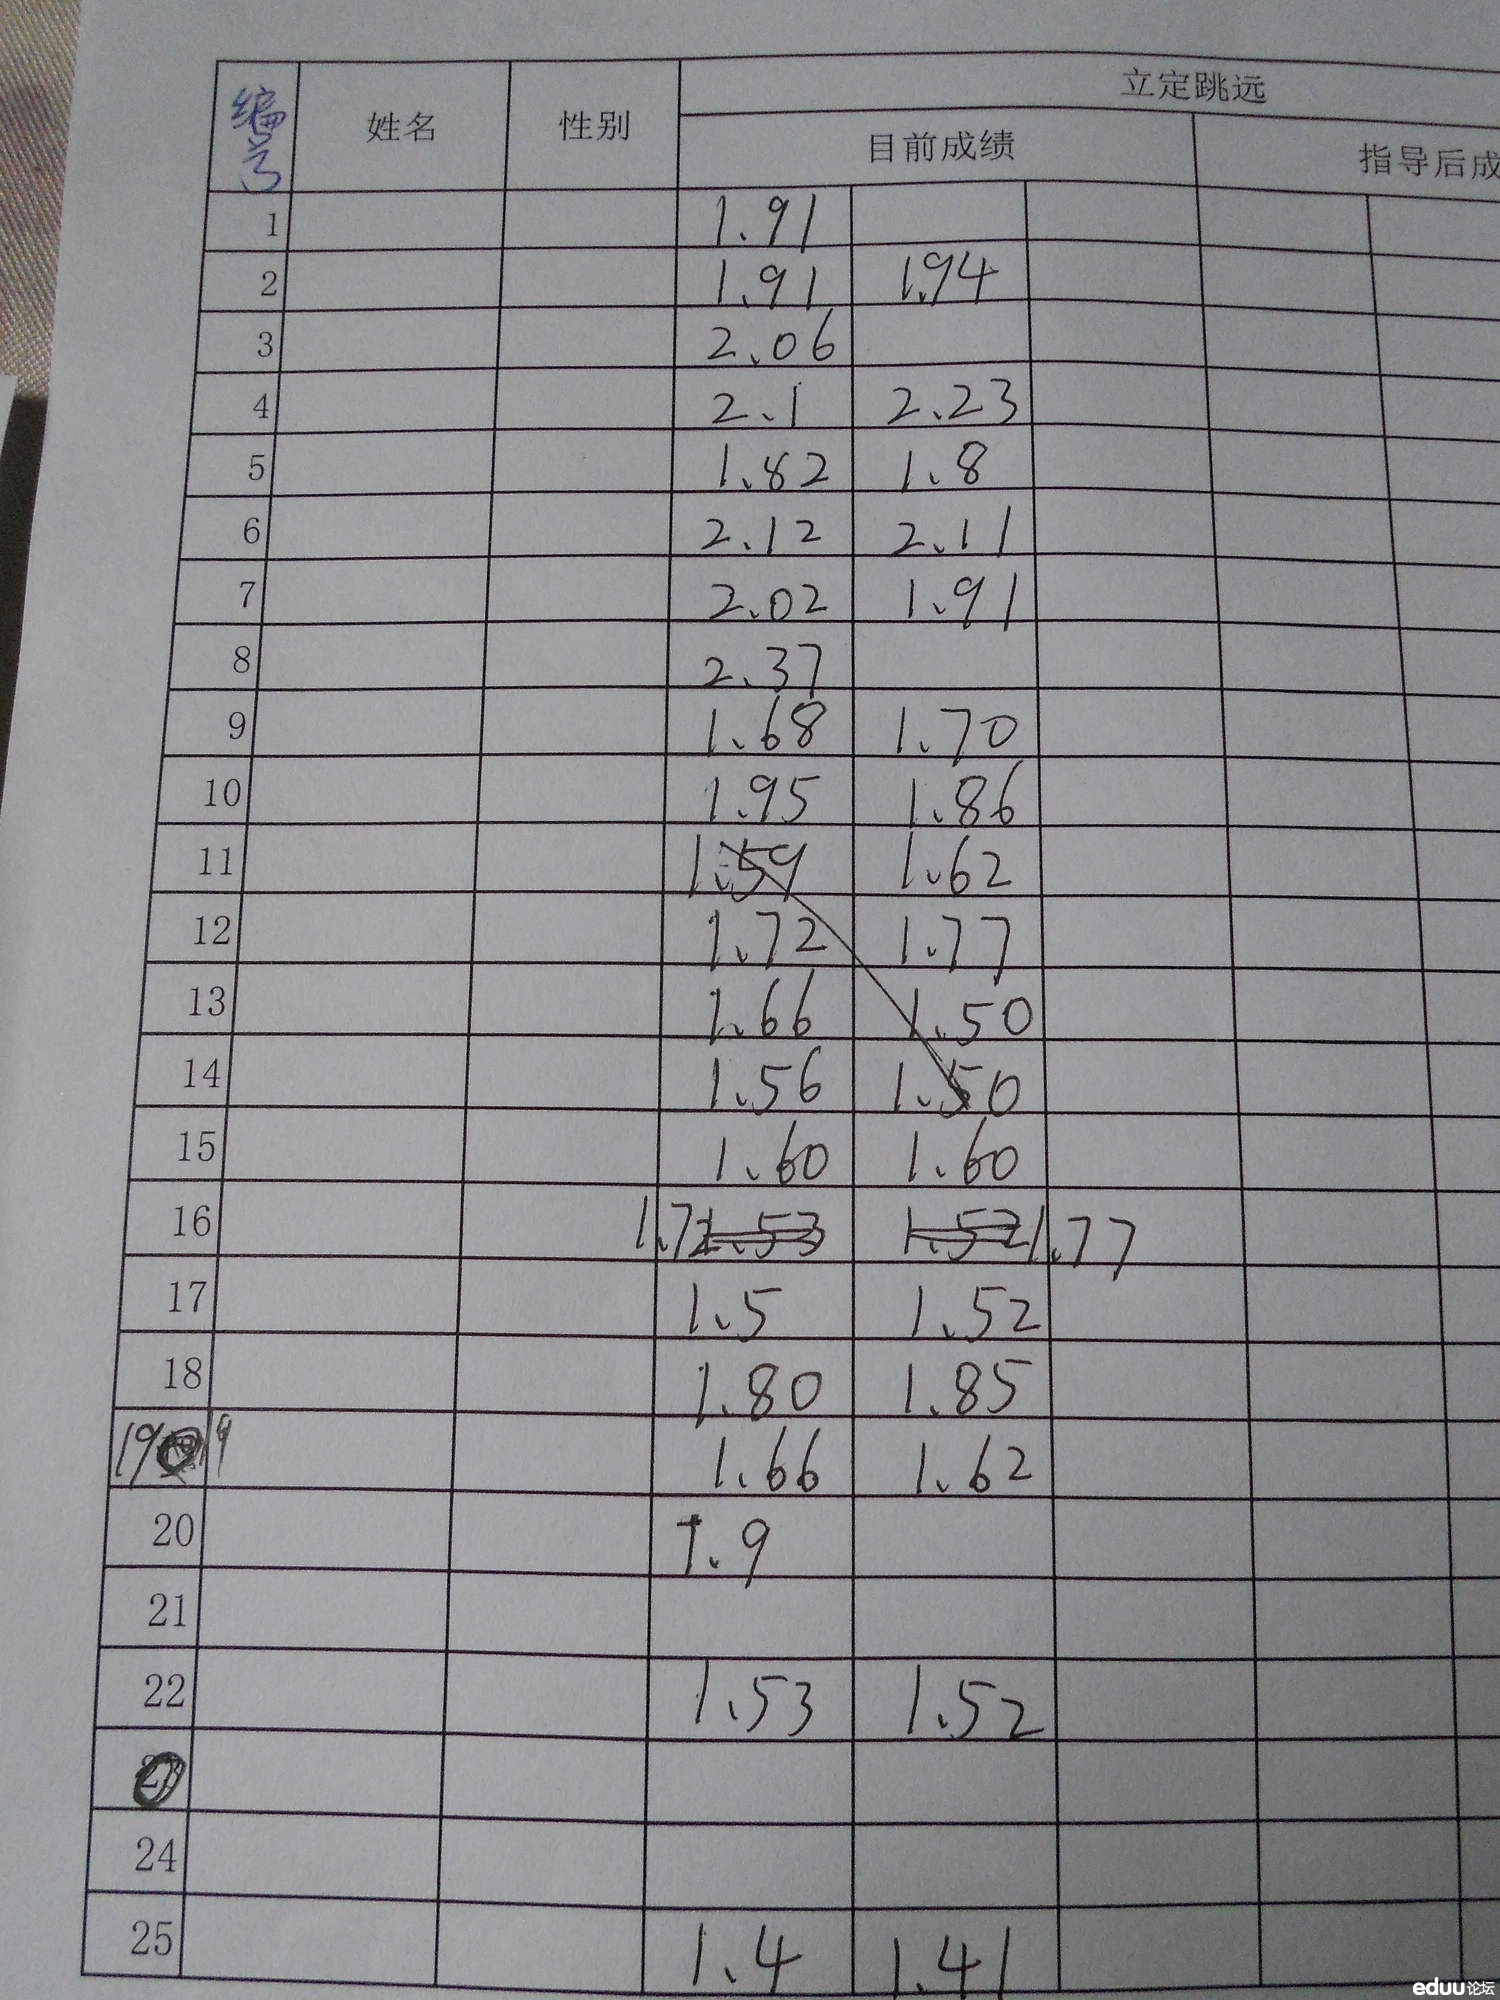 编号 姓名 性别 立定跳远
目前成绩 指导后成
1 1.91
2 1.91 1.94
3 2.06
4 2.1 2.23
5 1.82 1.8
6 2.12 2.11
7 2.02 1.91
8 2.37
9 1.68 1.70
10 1.95 1.86
11 1.59 1.62
12 1.72 1.77
13 1.66 1.50
14 1.56 1.50
15 1.60 1.60
16 1.72 1.53 1.52 1.77
17 1.5 1.52
18 1.80 1.85
19 19 1.66 1.62
20 1.9
21
22 1.53 1.52
24
25 1.4 1.41
eduu论坛